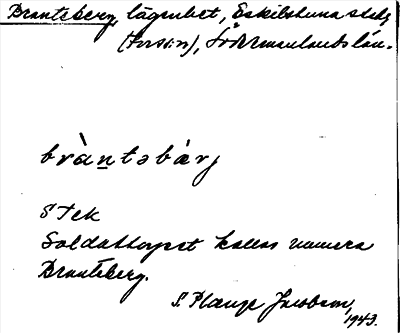 Brantsberg, lägenhet, Eskilstuna stad,
(Torssin), Södermanlands län.
bràntsbárj
S Tek
Soldattorpet kallas numera
Brantsberg.
S. Plauge Jacobson,
1943.